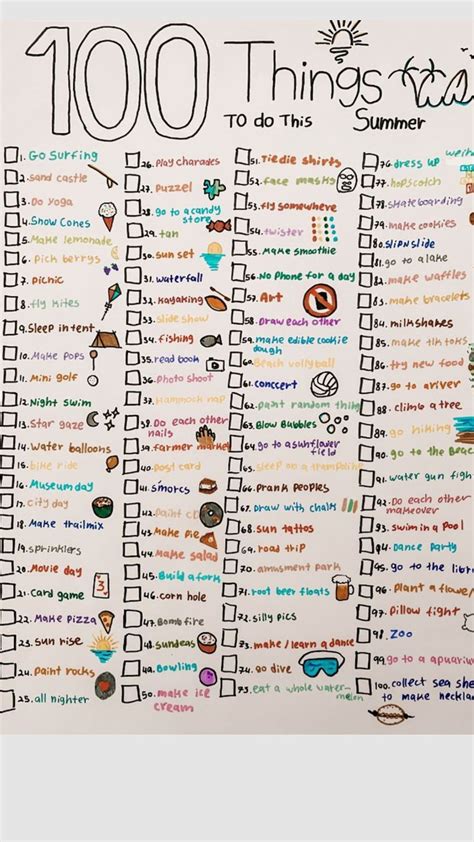 100 Things
To do This Summer
1. Go Surfing
2. sand castle
3. Do yoga
4. Show Cones
5. Make lemonade
6. Pich berrys
7. picnic
8. fly kites
9. Sleep in tent
10. Make Pops
11. Mini golf
12. Night swim
13. Star gaze
14. Water balloons
15. bike ride
16. Museum day
17. city day
18. Make trailmix
19. sprinklers
20. Movie day
21. Card game
22. Make Pizza
23. Sun rise
24. Paint rocks
25. all nighter
26. Play charades
27. Puzzel
28. go to a candy
store
29. tan
30. sun set
31. waterfall
32. Kayaking
33. slide show
34. fishing
35. read book
36. Photo shoot
37. Hammock nap
38. Do each other
nails
39. Farmer market
40. post card
41. s'mores
42. Paint
43. Make Pie
44. Make Salad
45. Build a fork
46. corn hole
47. Bomb fire
48. sundeas
49. Bowling
50. make ice
cream
51. Tie die shirts
52. face masks
53. fly somewhere
54. twister
55. Make smoothie
56. No Phone for a day
57. Art
58. Draw each other
59. make edible cookie
dough
60. Beach vollyball
61. concert
62. paint random thing
63. Blow Bubbles
64. go to a sunflower
field
65. sleep on a trampoline
66. Prank Peoples
67. Draw with chalk
68. sun tattos
69. road trip
70. amusment park
71. root beer floats
72. silly pics
73. make / learn a dance
74. go dive
75. eat a whole water-
melon
76. dress up
77. hopscotch
78. skateboarding
79. make cookies
80. slip n slide
81. go to a lake
82. make waffles
83. make bracelets
84. milkshakes
85. make tik toks
86. try new food
87. go to a river
88. climb a tree
89. go hiking
90. go to the Beach
91. water gun figh
92. Do each other
makeover
93. swim in a Pool
94. Dance Party
95. go to the libr
96. Plant a flower
97. Pillow fight
98. Zoo
99. go to a aquariu
100. collect sea she
to make necklac